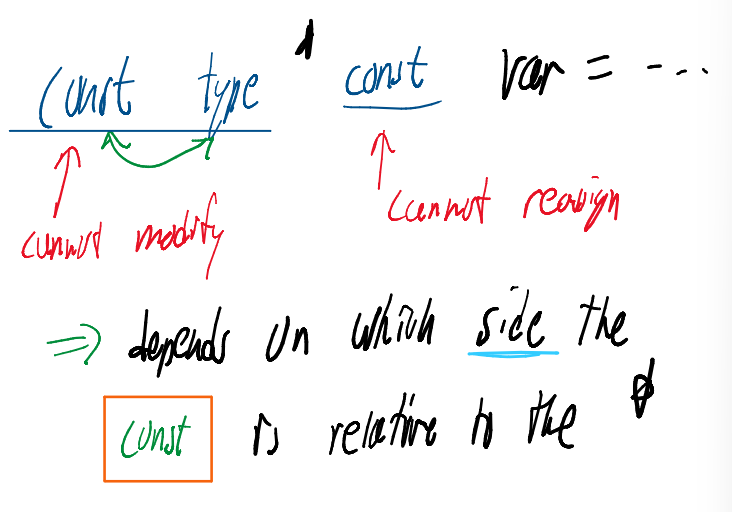 const type const var = ...
cannot modify cannot reassign
⇒ depends on which side the
const is relative to the